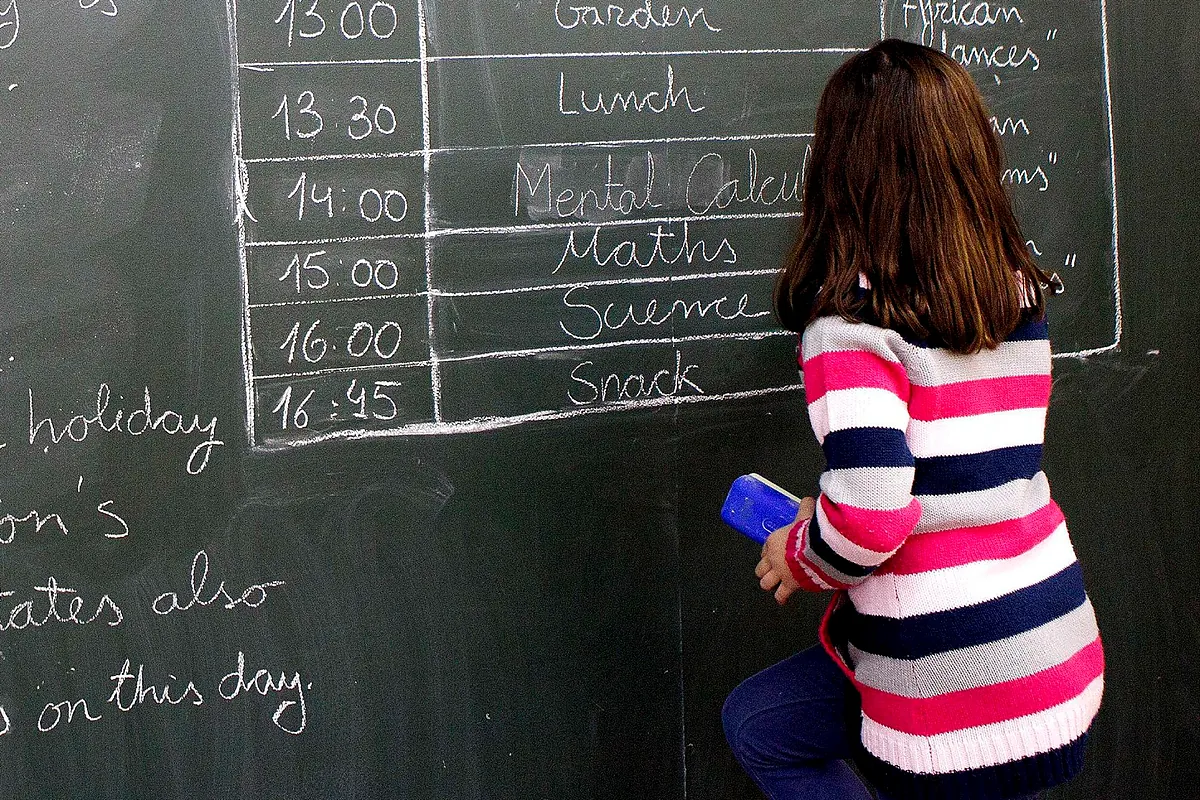 13:00 Garden African
dances"
13:30 Lunch
14:00 Mental Calcul
15:00 Maths
16:00 Science
16:45 Snack
holiday
on's
tates also
s on this day.